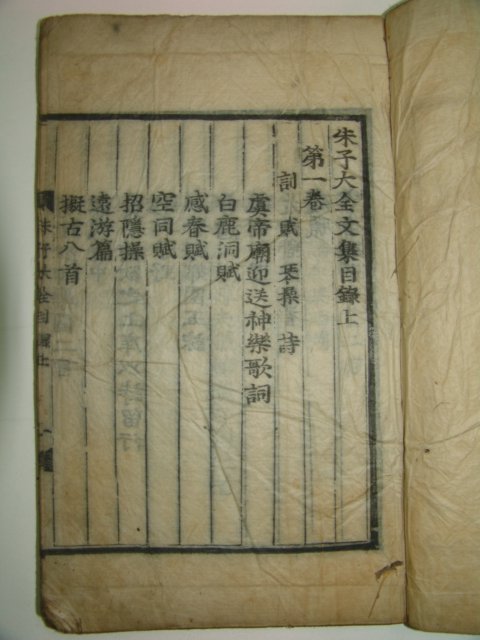 朱子大全文集目錄上
第一卷
詞 賦 琴操 詩
虞帝廟迎送神樂歌詞
白鹿洞賦
感春賦
空同賦
招隱操
遠游篇
擬古八首
朱子大全目錄上